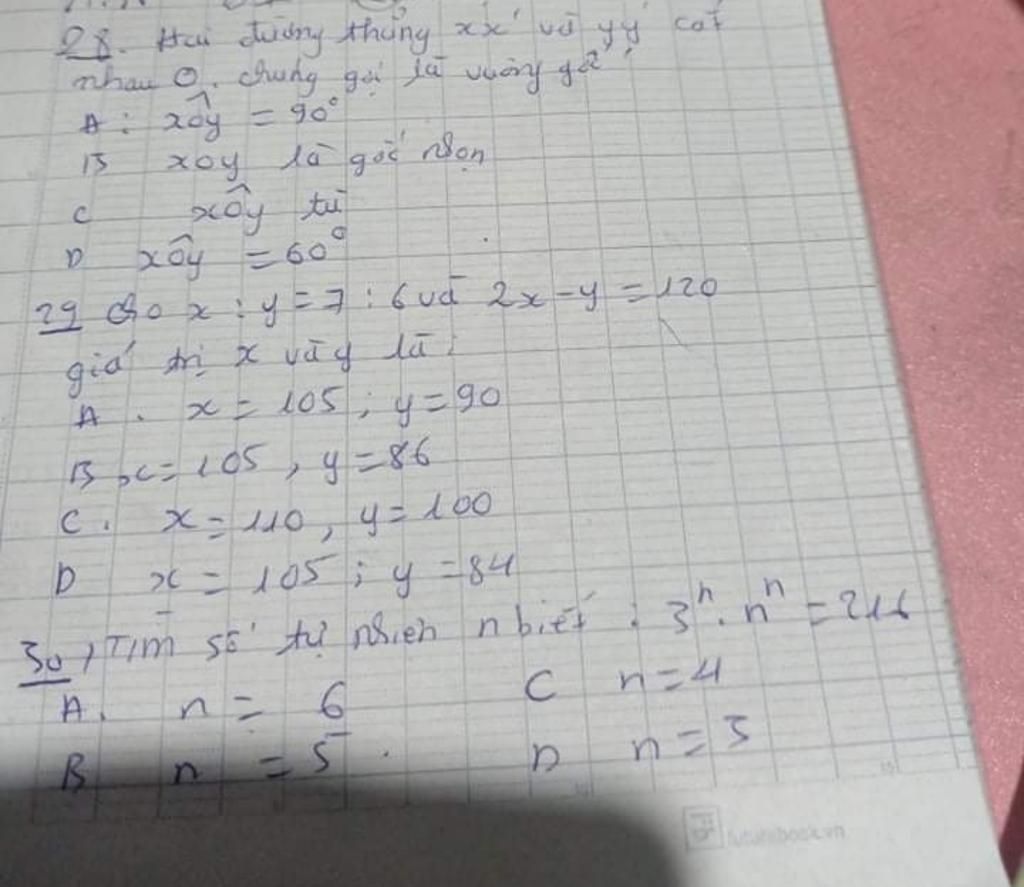 28. Hai đường thẳng xx' và yy' cắt
nhau O. chúng gọi là vuông góc
A: xôy = 90°
B xoy là góc nhọn
C xôy tù
D xôy = 60°
29 Cho x : y = 7 : 6 và 2x - y = 120
giá trị x và y là:
A. x = 105; y = 90
B x = 105, y = 86
C. x = 110, y = 100
D x = 105; y = 84
30, Tìm số tự nhiên n biết: 3ⁿ. nⁿ = 216
A. n = 6 C n = 4
B n = 5. D n = 3
futurebook.vn